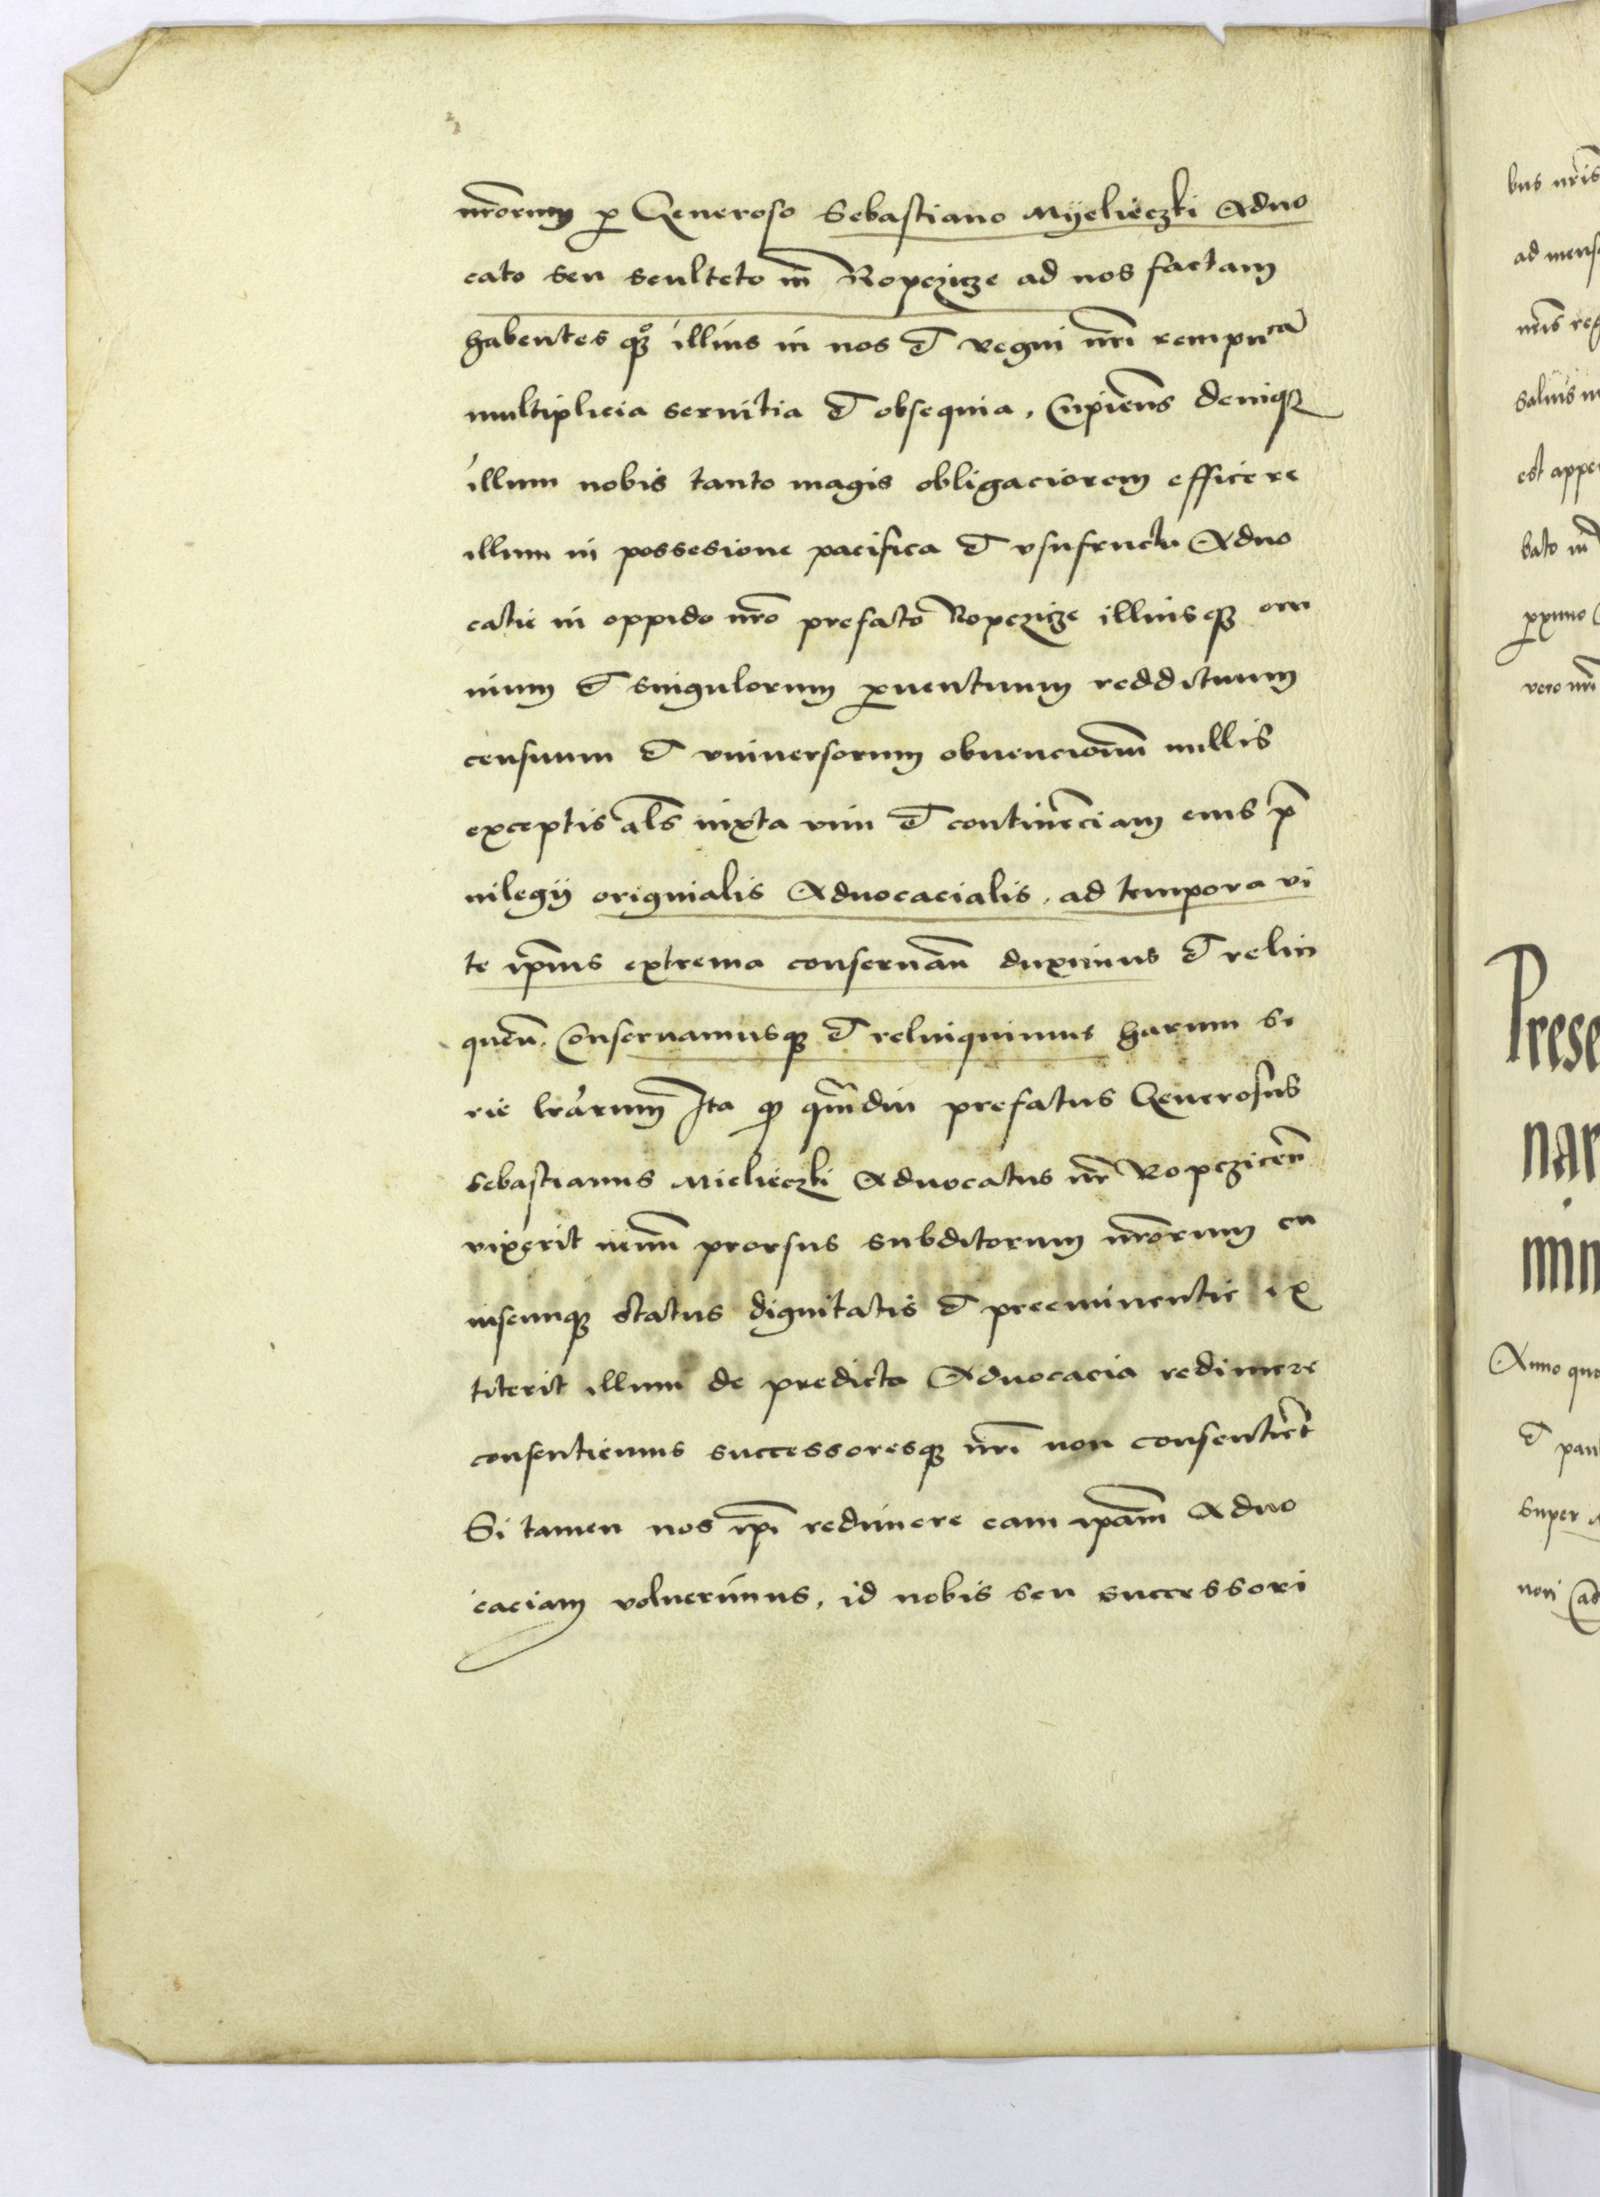 nrorum p Generoso Sebastiano Myelieczki Aduo
cato seu sculteto in Ropczicze ad nos factam
habentes illius in nos et regni nri rempucā
multiplicia seruitia et obsequia, Cupientes deniqȝ
illum nobis tanto magis obligaciorem efficere
illum in possesione pacifica et vsufructu Aduo
catie in oppido nro prefato Ropczicze illiusqȝ om
nium et singulorum puentuum reddituum
censuum et vniuersorum obuencionum nullis
exceptis als iuxta vim et continēciam eius p
uilegii originalis Aduocacialis, ad tempora vi
te ipius extrema conseruan duximus et relin
quen, Conseruamusqȝ et relinquimus harum se
rie lrarum Ita qp qmdiu prefatus Generosus
Sebastianus Mielieczki Aduocatus nr Ropczicen
vixerit nemini prorsus subditorum nrorum cu
iuscunqȝ status dignitatis et preeminentie ex
titerit illum de predicta Aduocacia redimere
consentiemus successoresqȝ nri non consentiēt
Si tamen nos ipi redimere eam ipam Aduo
caciam voluerimus, id nobis seu successori
bus nris
ad
nris
saluis
est
bato
pximo
vero nri
Prese
nar
min
Anno
et
super